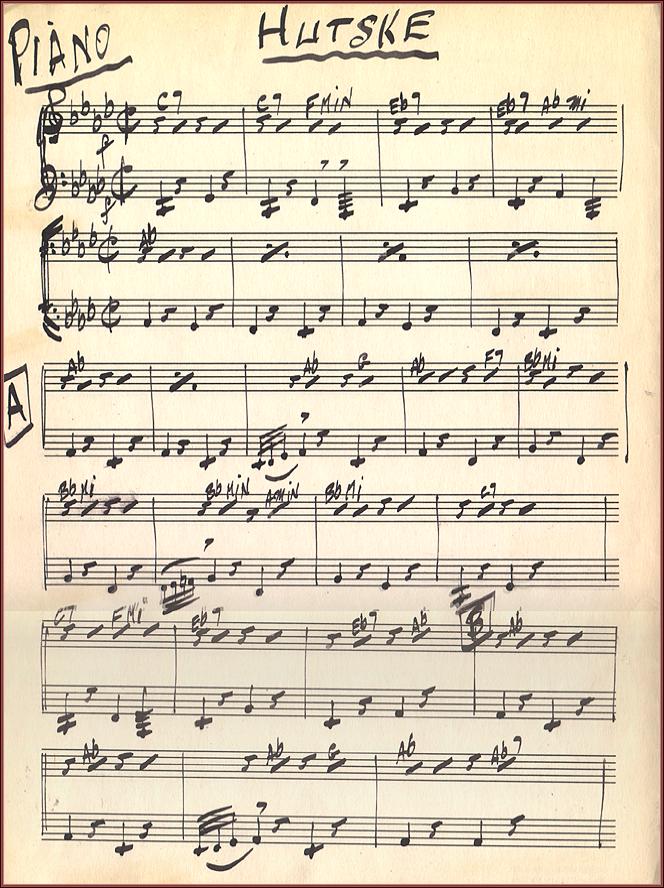 PIANO HUTSKE
C7 C7 FMIN Eb7 Eb7 Abmi
f
f
Ab
A
Ab Ab G Ab F7 BbMi
BbMi BbMIN AbMIN BbMi C7
C7 FMi Eb7 Eb7 Ab B Ab
Ab Ab G Ab Ab7